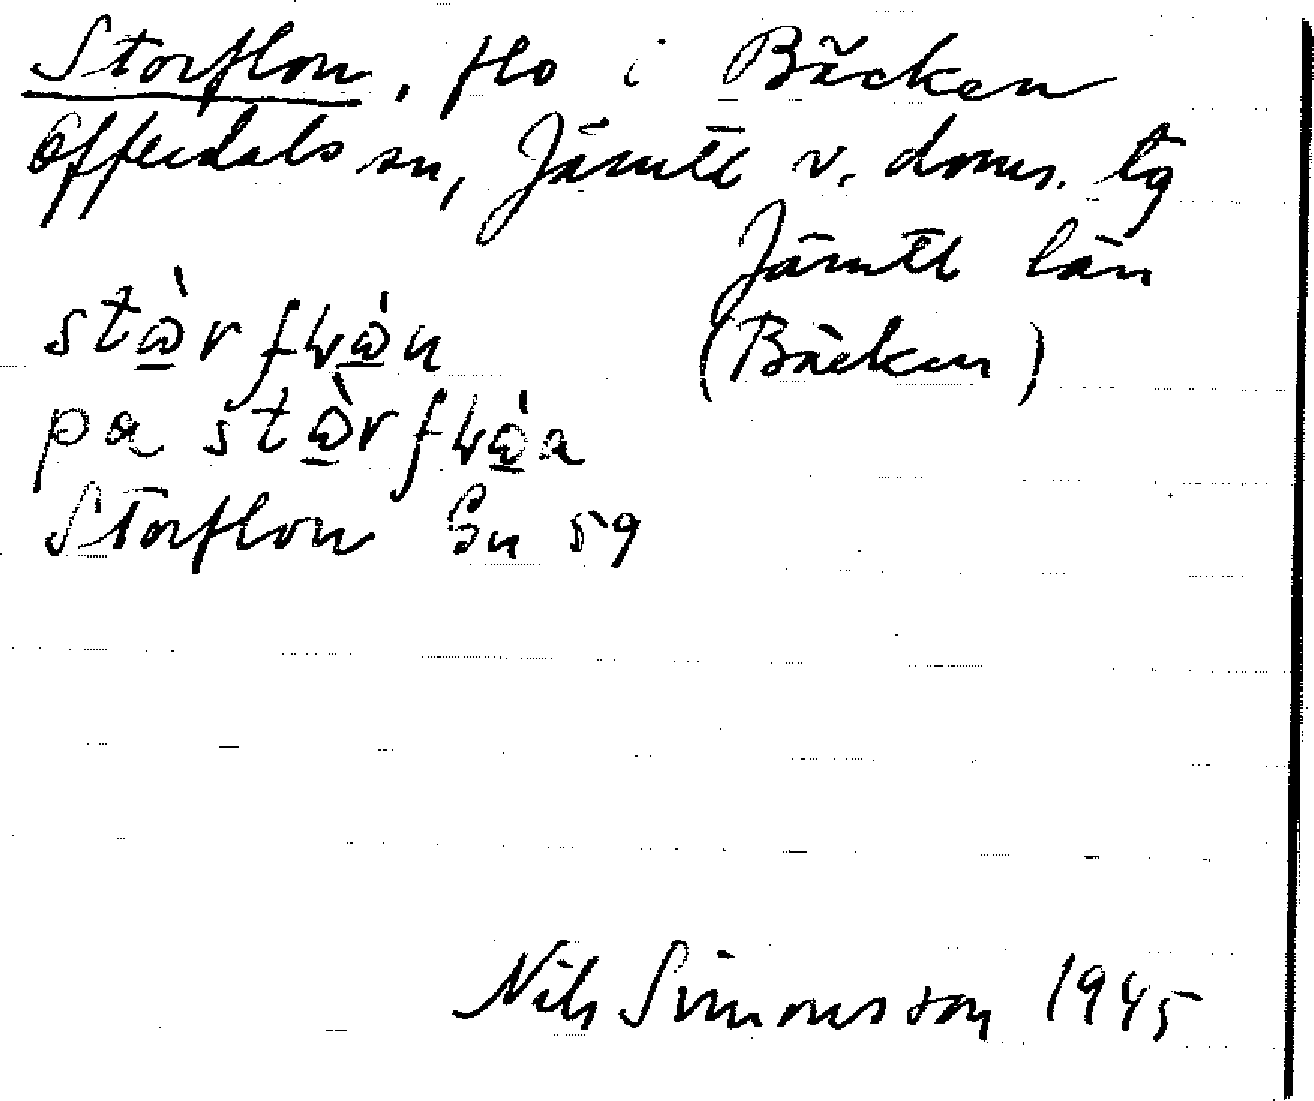 Storflon, flo i Bäcken
Offerdals sn, Jämtl v. doms. tg
Jämtl län
stὼ̲r fꞎὼ̲n (Bäcken)
pa stὼ̲r fꞎὼ̲a
Storflon Gn 59
Nils Simonsson 1945